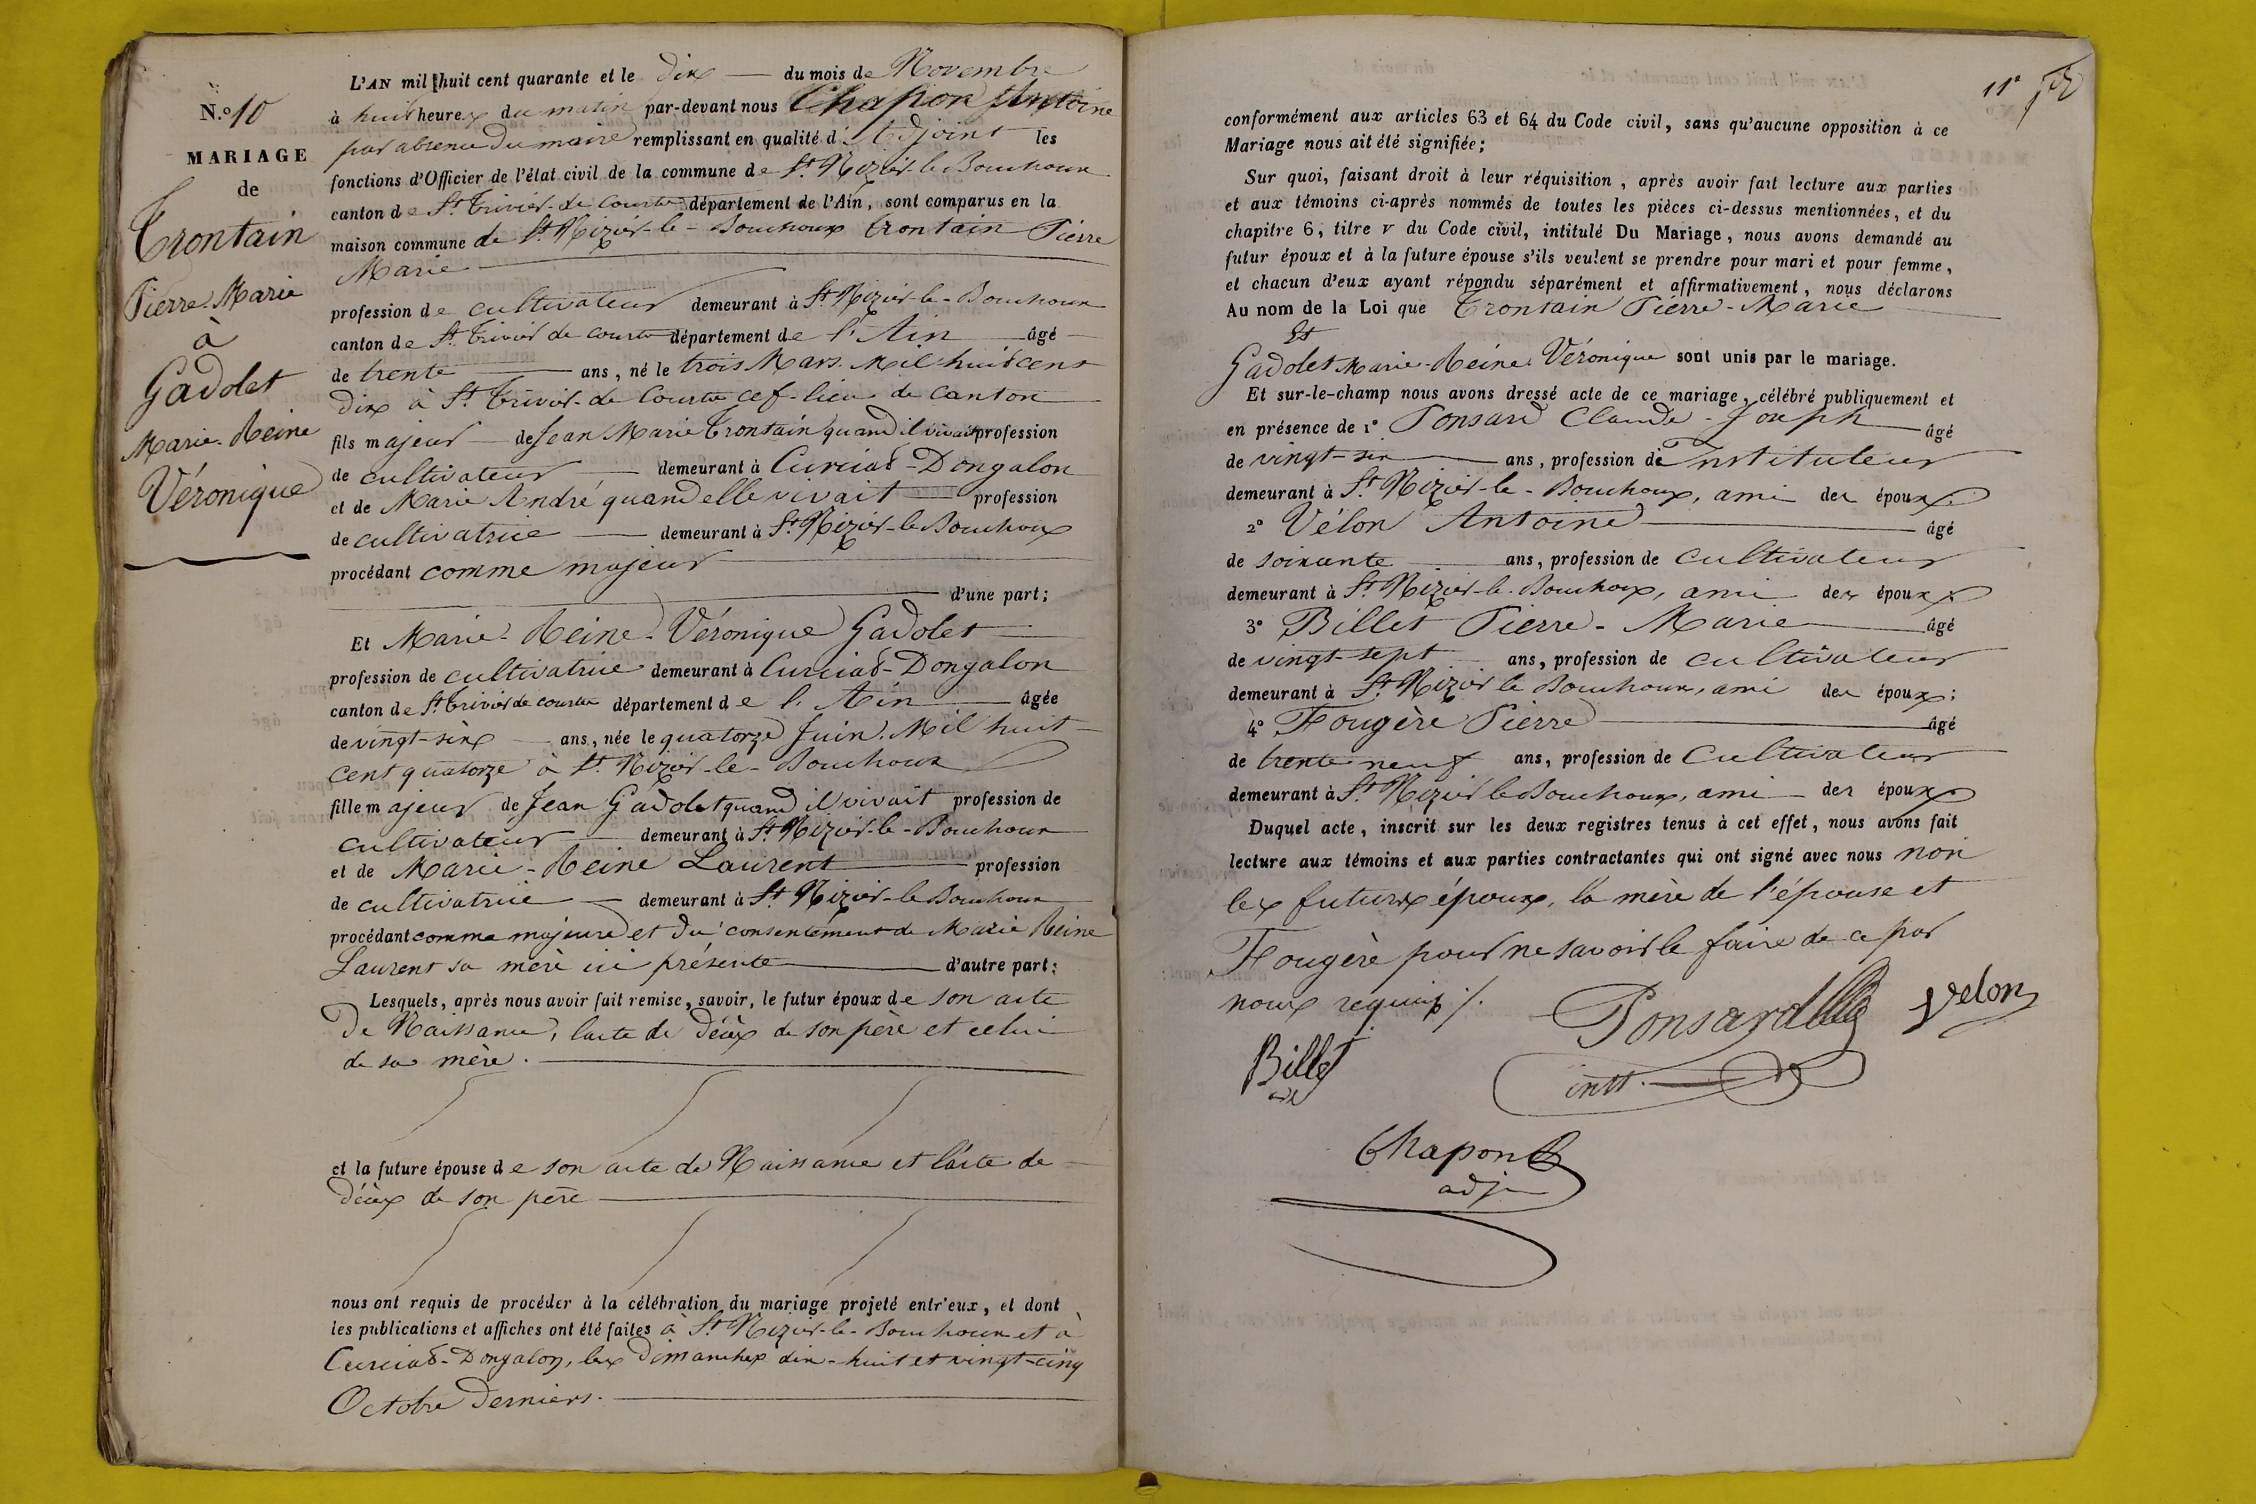 N.o 10
MARIAGE
de
Trontain
Pierre-Marie
à
Gadolet
Marie-Reine
Véronique
L'AN mil huit cent quarante et le dix du mois de Novembre
à huit heures du matin par-devant nous Chapon Antoine
par absence du maire remplissant en qualité d'Adjoint les
fonctions d'Officier de l'état civil de la commune de St. Nizier-le-Bouchoux
canton de St. Trivier-de-Courtes département de l'Ain, sont comparus en la
maison commune de St. Nizier-le-Bouchoux Trontain Pierre
Marie
profession de cultivateur demeurant à St. Nizier-le-Bouchoux
canton de St. Trivier de Courtes département de l'Ain âgé
de trente ans, né le trois Mars Mil huit cent
dix à St. Trivier-de Courtes cef-lieu de Canton
fils majeur de Jean Marie Trontain quand il vivait profession
de cultivateur demeurant à Curciat-Dongalon
et de Marie André quand elle vivait profession
de cultivatrice demeurant à St. Nizier-le Bouchoux
procédant comme majeur
d'une part;
Et Marie-Reine-Véronique Gadolet
profession de cultivatrice demeurant à Curciat-Dongalon
canton de St. Trivier de Courtes département de l'Ain âgée
de vingt-six ans, née le quatorze Juin Mil huit
cent quatorze à St. Nizier-le-Bouchoux
fille majeur de Jean Gadolet quand il vivait profession de
cultivateur demeurant à St. Nizier-le-Bouchoux
et de Marie-Reine Laurent profession
de cultivatrice demeurant à St. Nizier-le Bouchoux
procédant comme majeure et du consentement de Marie Reine
Laurent sa mère ici présente d'autre part;
Lesquels, après nous avoir fait remise, savoir, le futur époux de son acte
de Naissance, l'acte de décès de son père et celui
de sa mère.
et la future épouse de son acte de Naissance et l'acte de
décès de son père
nous ont requis de procéder à la célébration du mariage projeté entr'eux, et dont
les publications et affiches ont été faites à St. Nizier-le-Bouchoux et à
Curciat-Dongalon, les dimanches dix-huit et vingt-cinq
Octobre derniers.
11e
conformément aux articles 63 et 64 du Code civil, sans qu'aucune opposition à ce
Mariage nous ait été signifiée;
Sur quoi, faisant droit à leur réquisition, après avoir fait lecture aux parties
et aux témoins ci-après nommés de toutes les pièces ci-dessus mentionnées, et du
chapitre 6, titre V du Code civil, intitulé Du Mariage, nous avons demandé au
futur époux et à la future épouse s'ils veulent se prendre pour mari et pour femme,
et chacun d'eux ayant répondu séparément et affirmativement, nous déclarons
Au nom de la Loi que Trontain Pierre-Marie
Et
Gadolet Marie-Reine Véronique sont unis par le mariage.
Et sur-le-champ nous avons dressé acte de ce mariage, célébré publiquement et
en présence de 1° Ponsard Claude-Joseph âgé
de vingt-six ans, profession de Instituteur
demeurant à St. Nizier-le-Bouchoux, ami des époux.
2° Vélon Antoine âgé
de soixante ans, profession de cultivateur
demeurant à St. Nizier-le-Bouchoux, ami des époux
3° Billet Pierre-Marie âgé
de vingt-sept ans, profession de cultivateur
demeurant à St. Nizier le Bouchoux, ami des époux;
4° Fougère Pierre âgé
de trente neuf ans, profession de Cultivateur
demeurant à St. Nizier le Bouchoux, ami des époux
Duquel acte, inscrit sur les deux registres tenus à cet effet, nous avons fait
lecture aux témoins et aux parties contractantes qui ont signé avec nous non
les futurs époux, la mère de l'épouse et
Fougère pour ne savoir le faire de ce par
nous requis ./.
Ponsard Velon
Billet
intt.
Chapon
adj